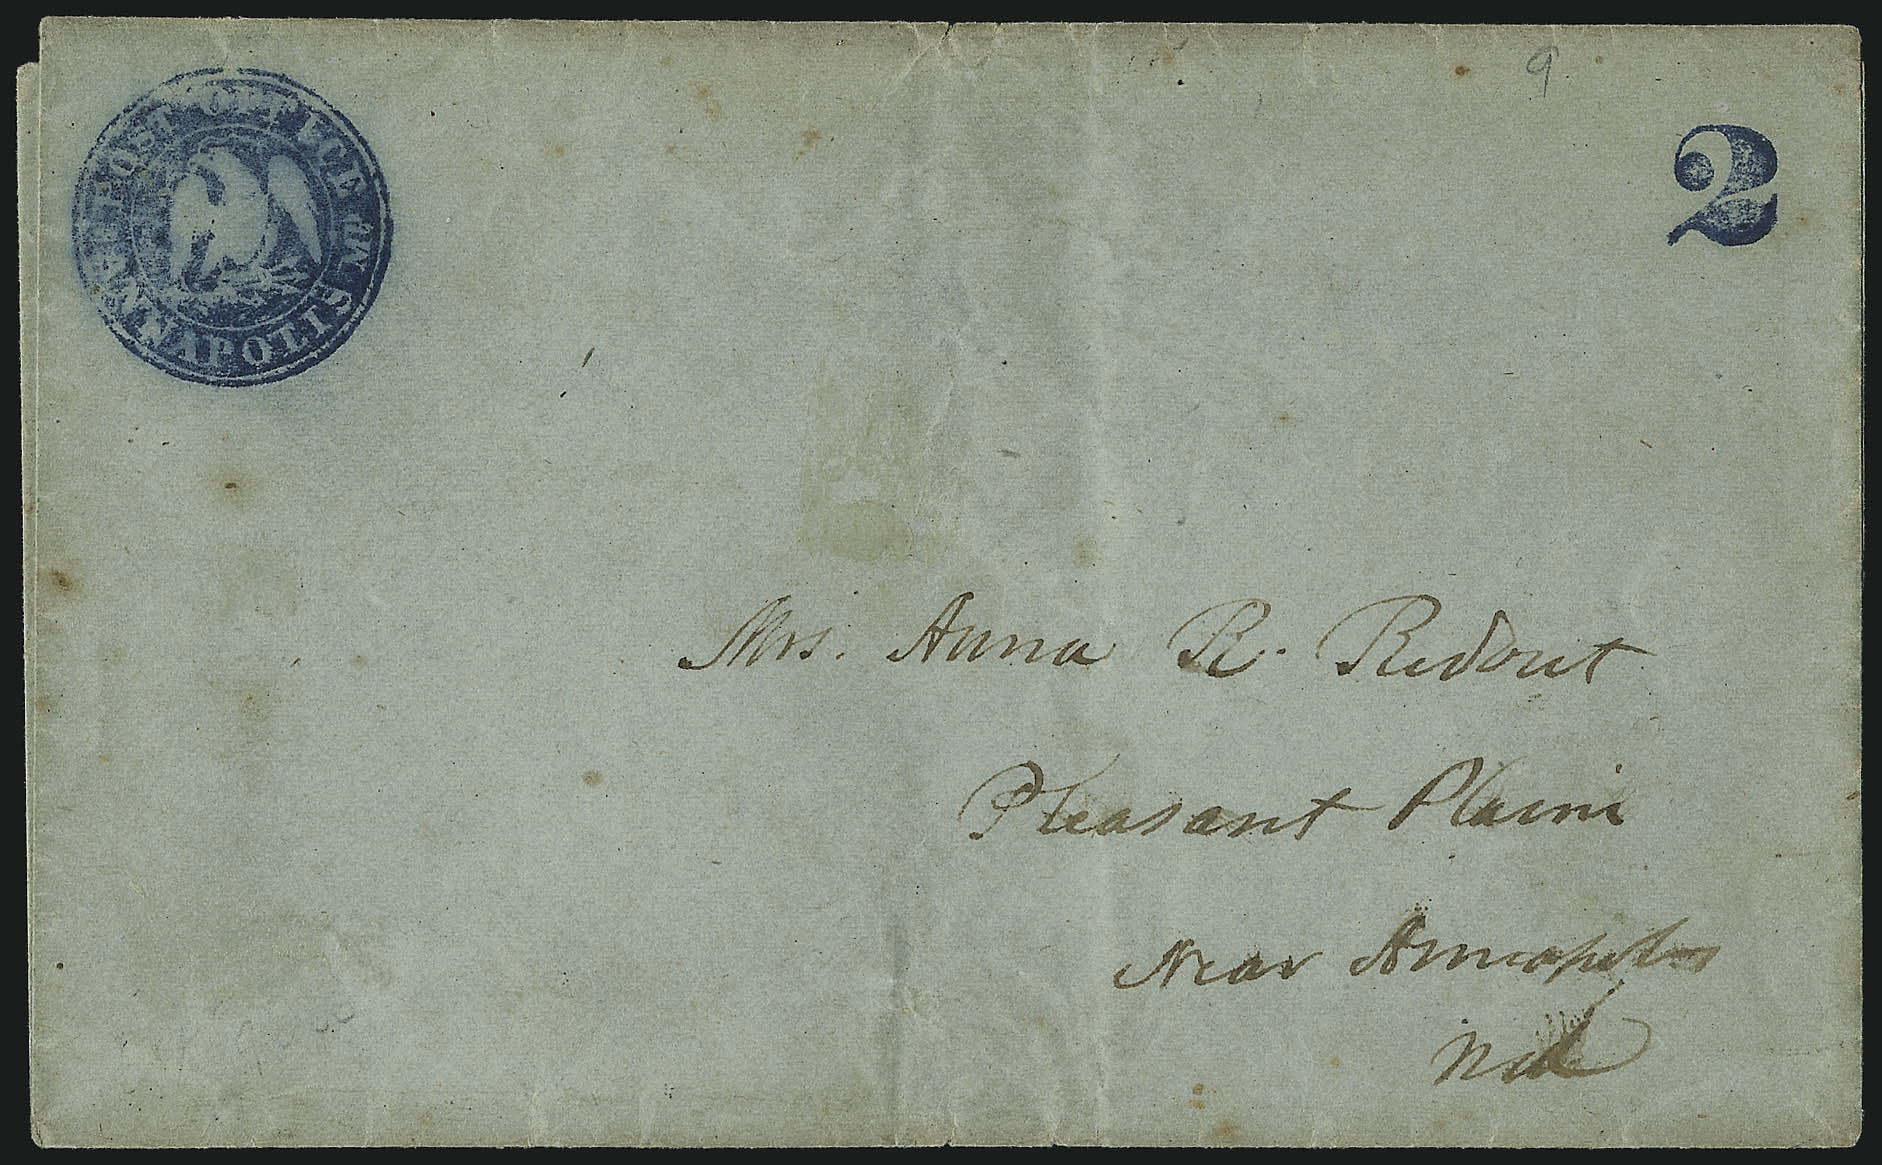 POST OFFICE
ANNAPOLIS Md
9
2
Mrs. Anna R. Ridout
Pleasant Plains
Near Annapolis
Md